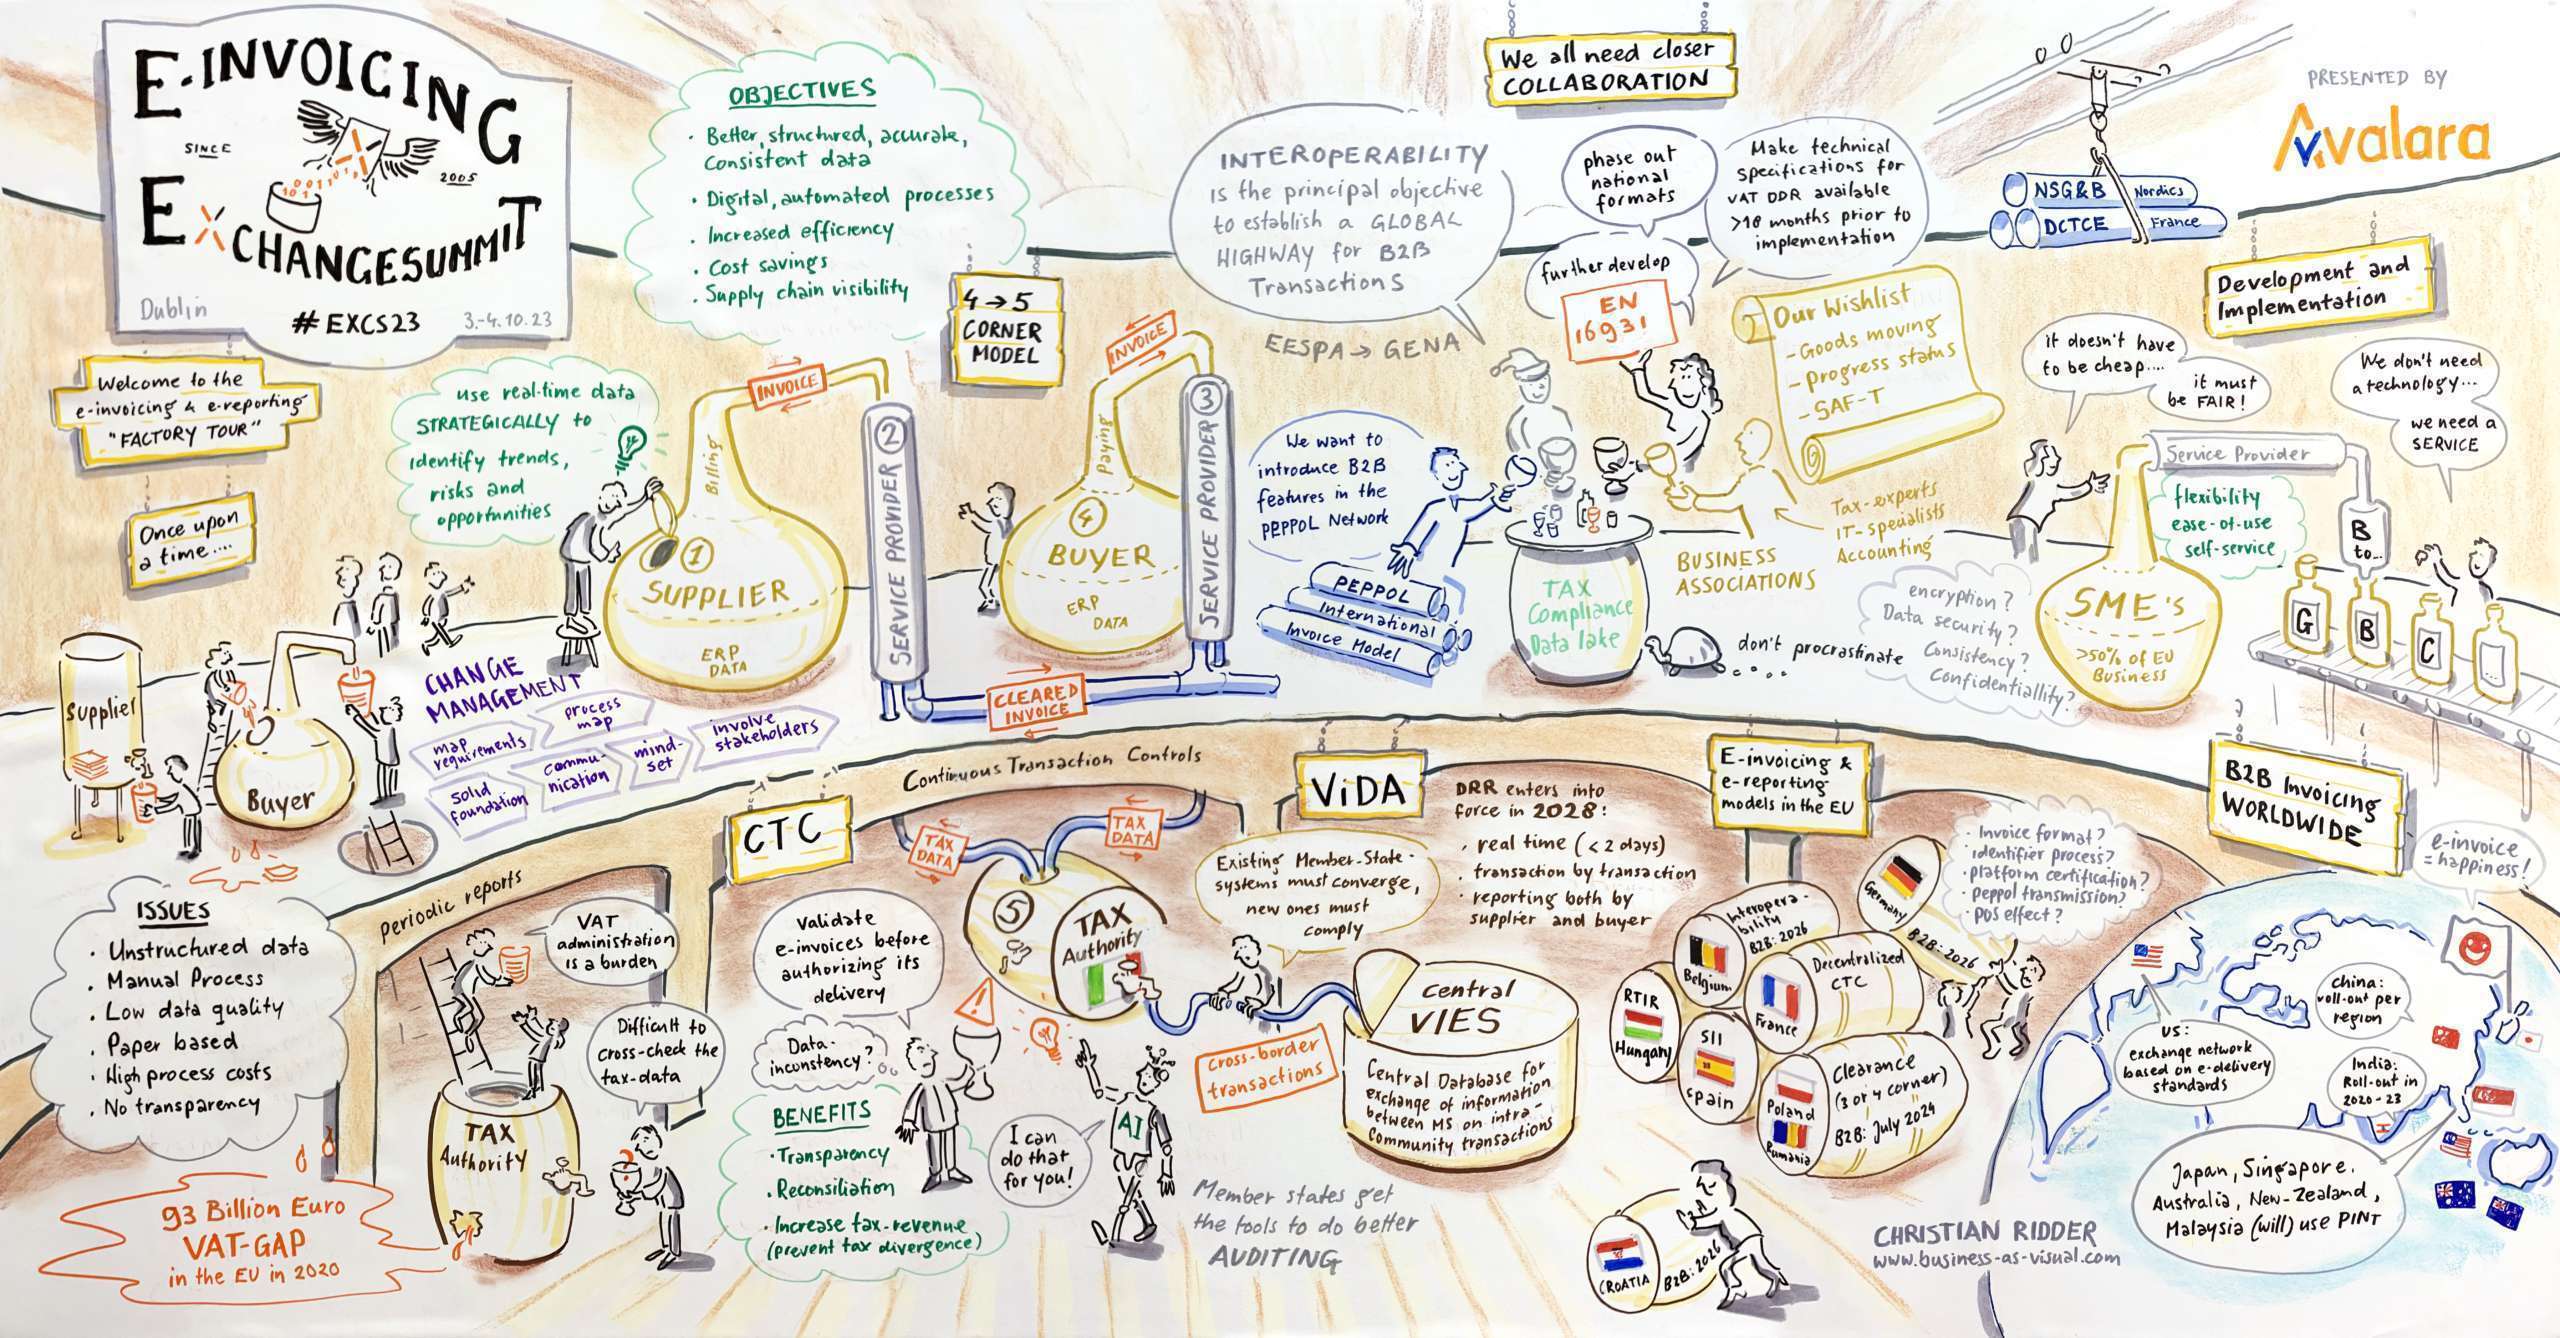 E-INVOICING
SINCE
2005
EXCHANGESUMMIT
Dublin
#EXCS23
3.-4.10.23
Welcome to the
e-invoicing & e-reporting
"FACTORY TOUR"
Once upon
a time....
OBJECTIVES
· Better, structured, accurate,
consistent data
· Digital, automated processes
· Increased efficiency
· Cost savings
· Supply chain visibility
use real-time data
STRATEGICALLY to
identify trends,
risks and
opportunities
4 → 5
CORNER
MODEL
Billing
INVOICE
1
SUPPLIER
ERP
DATA
2
SERVICE PROVIDER
INVOICE
Paying
4
BUYER
ERP
DATA
3
SERVICE PROVIDER
CLEARED
INVOICE
We all need closer
COLLABORATION
INTEROPERABILITY
is the principal objective
to establish a GLOBAL
HIGHWAY for B2B
Transactions
EESPA → GENA
phase out
national
formats
Make technical
specifications for
VAT DDR available
>18 months prior to
implementation
further develop
EN
16931
Our Wishlist
- Goods moving
- progress status
- SAF-T
We want to
introduce B2B
features in the
PEPPOL Network
PEPPOL
International
Invoice Model
TAX
Compliance
Data lake
BUSINESS
ASSOCIATIONS
Tax-experts
IT-specialists
Accounting
don't procrastinate
PRESENTED BY
Avalara
NSG&B Nordics
DCTCE France
Development and
Implementation
it doesn't have
to be cheap....
it must
be FAIR!
We don't need
a technology...
we need a
SERVICE
Service Provider
flexibility
ease-of-use
self-service
B
to...
G
B
C
encryption?
Data security?
Consistency?
Confidentiallity?
SME's
>50% of EU
Business
Supplier
Buyer
CHANGE
MANAGEMENT
map
requirements
process
map
solid
foundation
commu-
nication
mind-
set
involve
stakeholders
ISSUES
· Unstructured data
· Manual Process
· Low data quality
· Paper based
· High process costs
· No transparency
93 Billion Euro
VAT-GAP
in the EU in 2020
periodic reports
VAT
administration
is a burden
Difficult to
cross-check the
tax-data
TAX
Authority
Continuous Transaction Controls
CTC
TAX
DATA
TAX
DATA
5
TAX
Authority
Validate
e-invoices before
authorizing its
delivery
Data-
inconstency?
BENEFITS
· Transparency
· Reconsiliation
· Increase tax-revenue
(prevent tax divergence)
I can
do that
for you!
AI
ViDA
DRR enters into
force in 2028:
· real time (< 2 days)
· transaction by transaction
· reporting both by
supplier and buyer
Existing Member-State-
systems must converge,
new ones must
comply
cross-border
transactions
Central
VIES
Central Database for
exchange of information
between MS on intra-
Community transactions
Member states get
the tools to do better
AUDITING
E-invoicing &
e-reporting
models in the EU
· Invoice format?
· identifier process?
· platform certification?
· peppol transmission?
· POS effect?
Germany
B2B: 2026
Belgium
Interopera-
bility
B2B: 2026
France
Decentralized
CTC
RTIR
Hungary
SII
Spain
Poland
Rumania
Clearance
(3 or 4 corner)
B2B: July 2024
CROATIA
B2B: 2026
B2B Invoicing
WORLDWIDE
e-invoice
= happiness!
US:
exchange network
based on e-delivery
standards
China:
roll-out per
region
India:
Roll-out in
2020-23
Japan, Singapore,
Australia, New-Zealand,
Malaysia (will) use PINT
CHRISTIAN RIDDER
www.business-as-visual.com